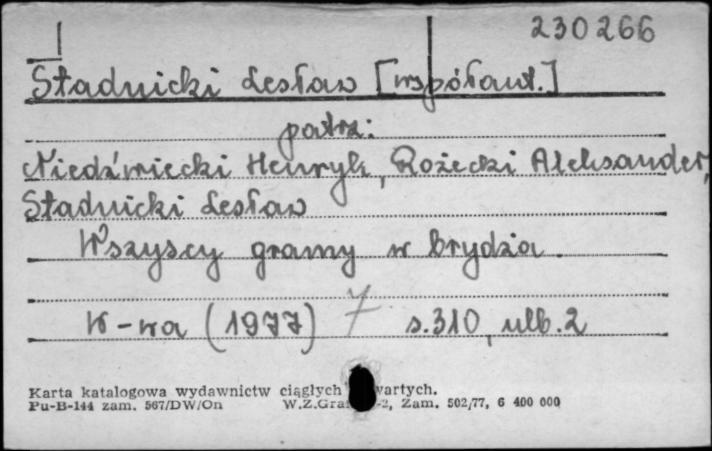 230266
Stadnicki Lesław [współaut.]
patrz:
Niedźwiecki Henryk, Rożecki Aleksander,
Stadnicki Lesław
Wszyscy gramy w brydża.
W-wa (1977) 7 s.310, ulb.2
Karta katalogowa wydawnictw ciągłych wartych.
Pu-B-144 zam. 567/DW/On W.Z.Graf. -2, Zam. 502/77, 6 400 000